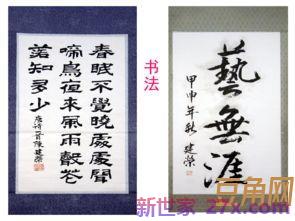 春眠不覺曉處處聞
啼鳥夜來風雨聲花
落知多少
唐诗一首 陳建榮
书法
藝無涯
甲申年秋 建榮
新世家